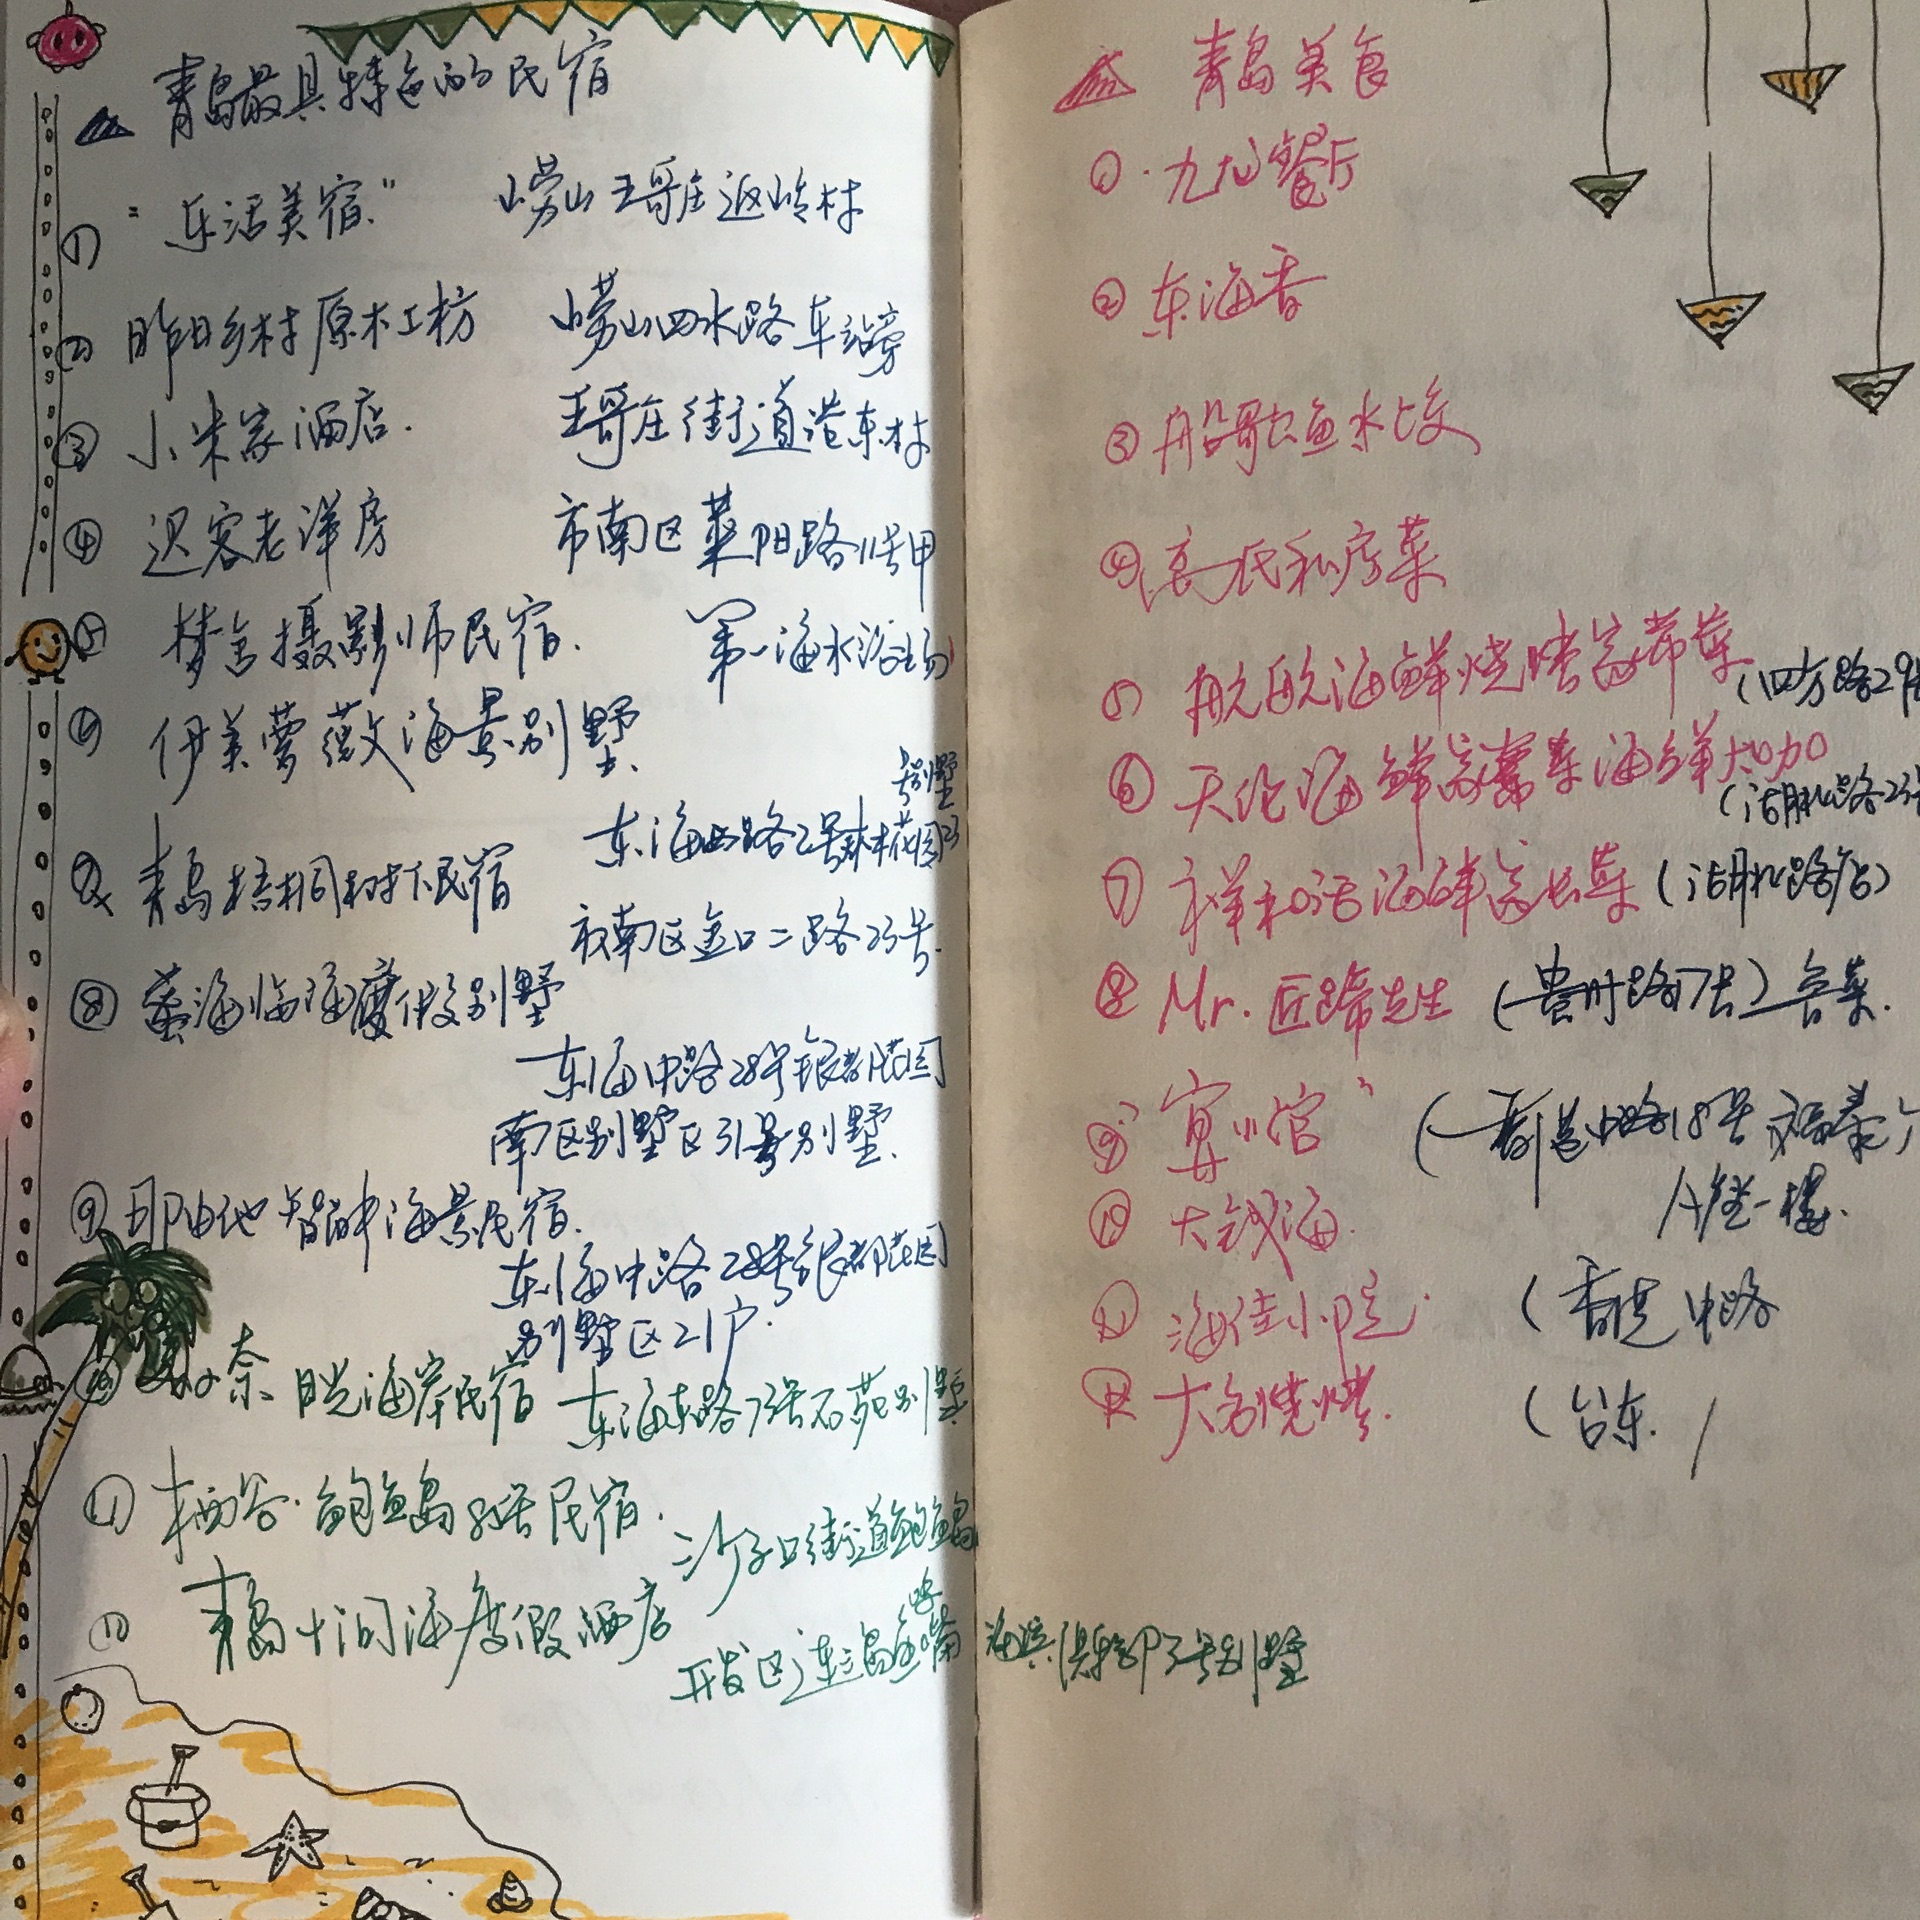 青岛最具特色的民宿
① "乐活美宿" 崂山王哥庄返岭村
② 昨日乡村原木工坊 崂山四水路车站旁
③ 小米家酒店. 王哥庄街道港东村
④ 迟客老洋房 市南区莱阳路11号甲
⑤ 梦舍摄影师民宿. 第一海水浴场
⑥ 伊美蔷薇海景别墅.
东海西路2号 花园23
号别墅
⑦ 青岛梧桐树下民宿
市南区金口二路23号.
⑧ 蓝海临海度假别墅
东海中路28号银都花园
南区别墅区31号别墅.
⑨ 海景民宿.
东海中路28号银都花园
别墅区21户.
⑩ 奈 海岸民宿 东海东路73号石 别墅
⑪ 栖谷·鲍鱼岛8号民宿.
沙子口街道鲍鱼岛
青岛十间海度假酒店
开发区连三岛鱼鸣嘴路
海滨俱乐部3号别墅
青岛美食
① 九龙餐厅
② 东海香
③ 船歌鱼水饺
④ 高氏私房菜
⑤ 航航海鲜烧烤家常菜 (四方路29
⑥ 天伦海鲜家常菜海鲜大咖
(芝罘路23号
⑦ 祥和活海鲜家常菜 ( 路店)
⑧ Mr. 匠蹄先生 ( 路17号) 鲁菜.
⑨ " 小馆" (香港中路18号福泰广
A座一楼.
⑩ 大 海.
⑪ 海佳小院. (香港中路
⑫ 大 烧烤. (台东. )